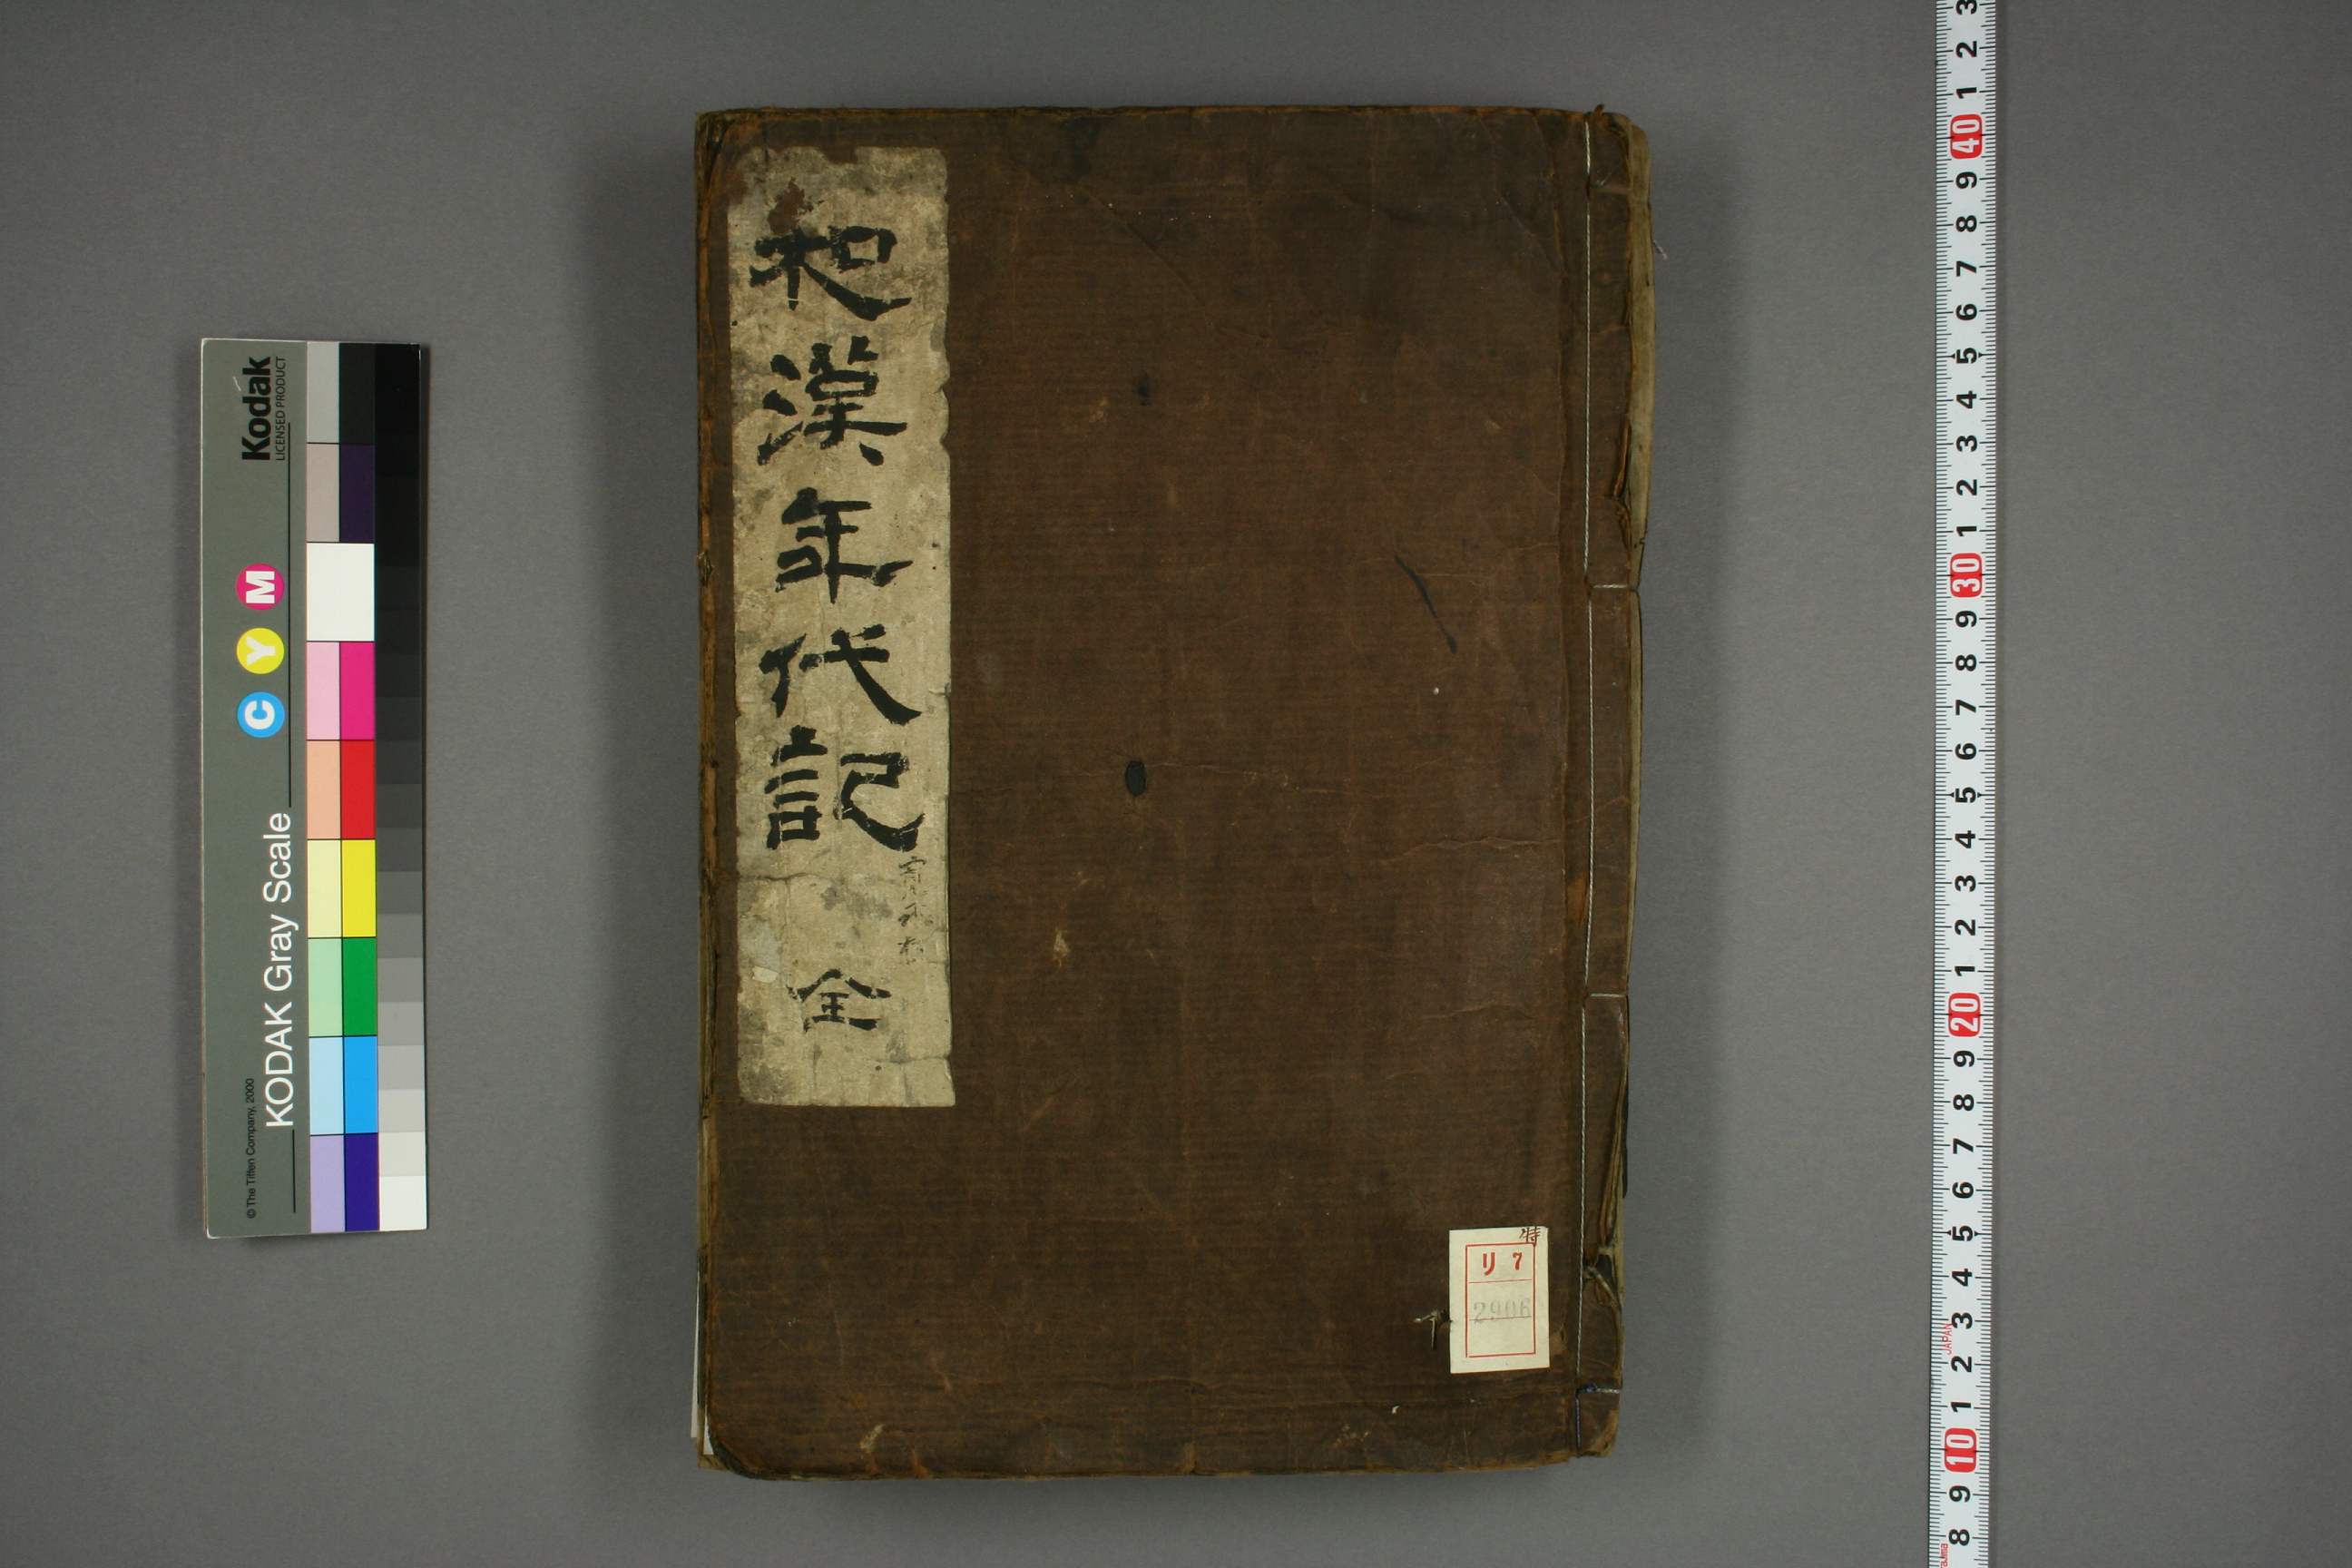 和漢年代記 全
特
リ 7
2906
Kodak
LICENSED PRODUCT
C Y M
KODAK Gray Scale
© The Tiffen Company, 2000
3
2
1
40
9
8
7
6
5
4
3
2
1
30
9
8
7
6
5
4
3
2
1
20
9
8
7
6
5
4
3
JAPAN
2
1
10
9
8